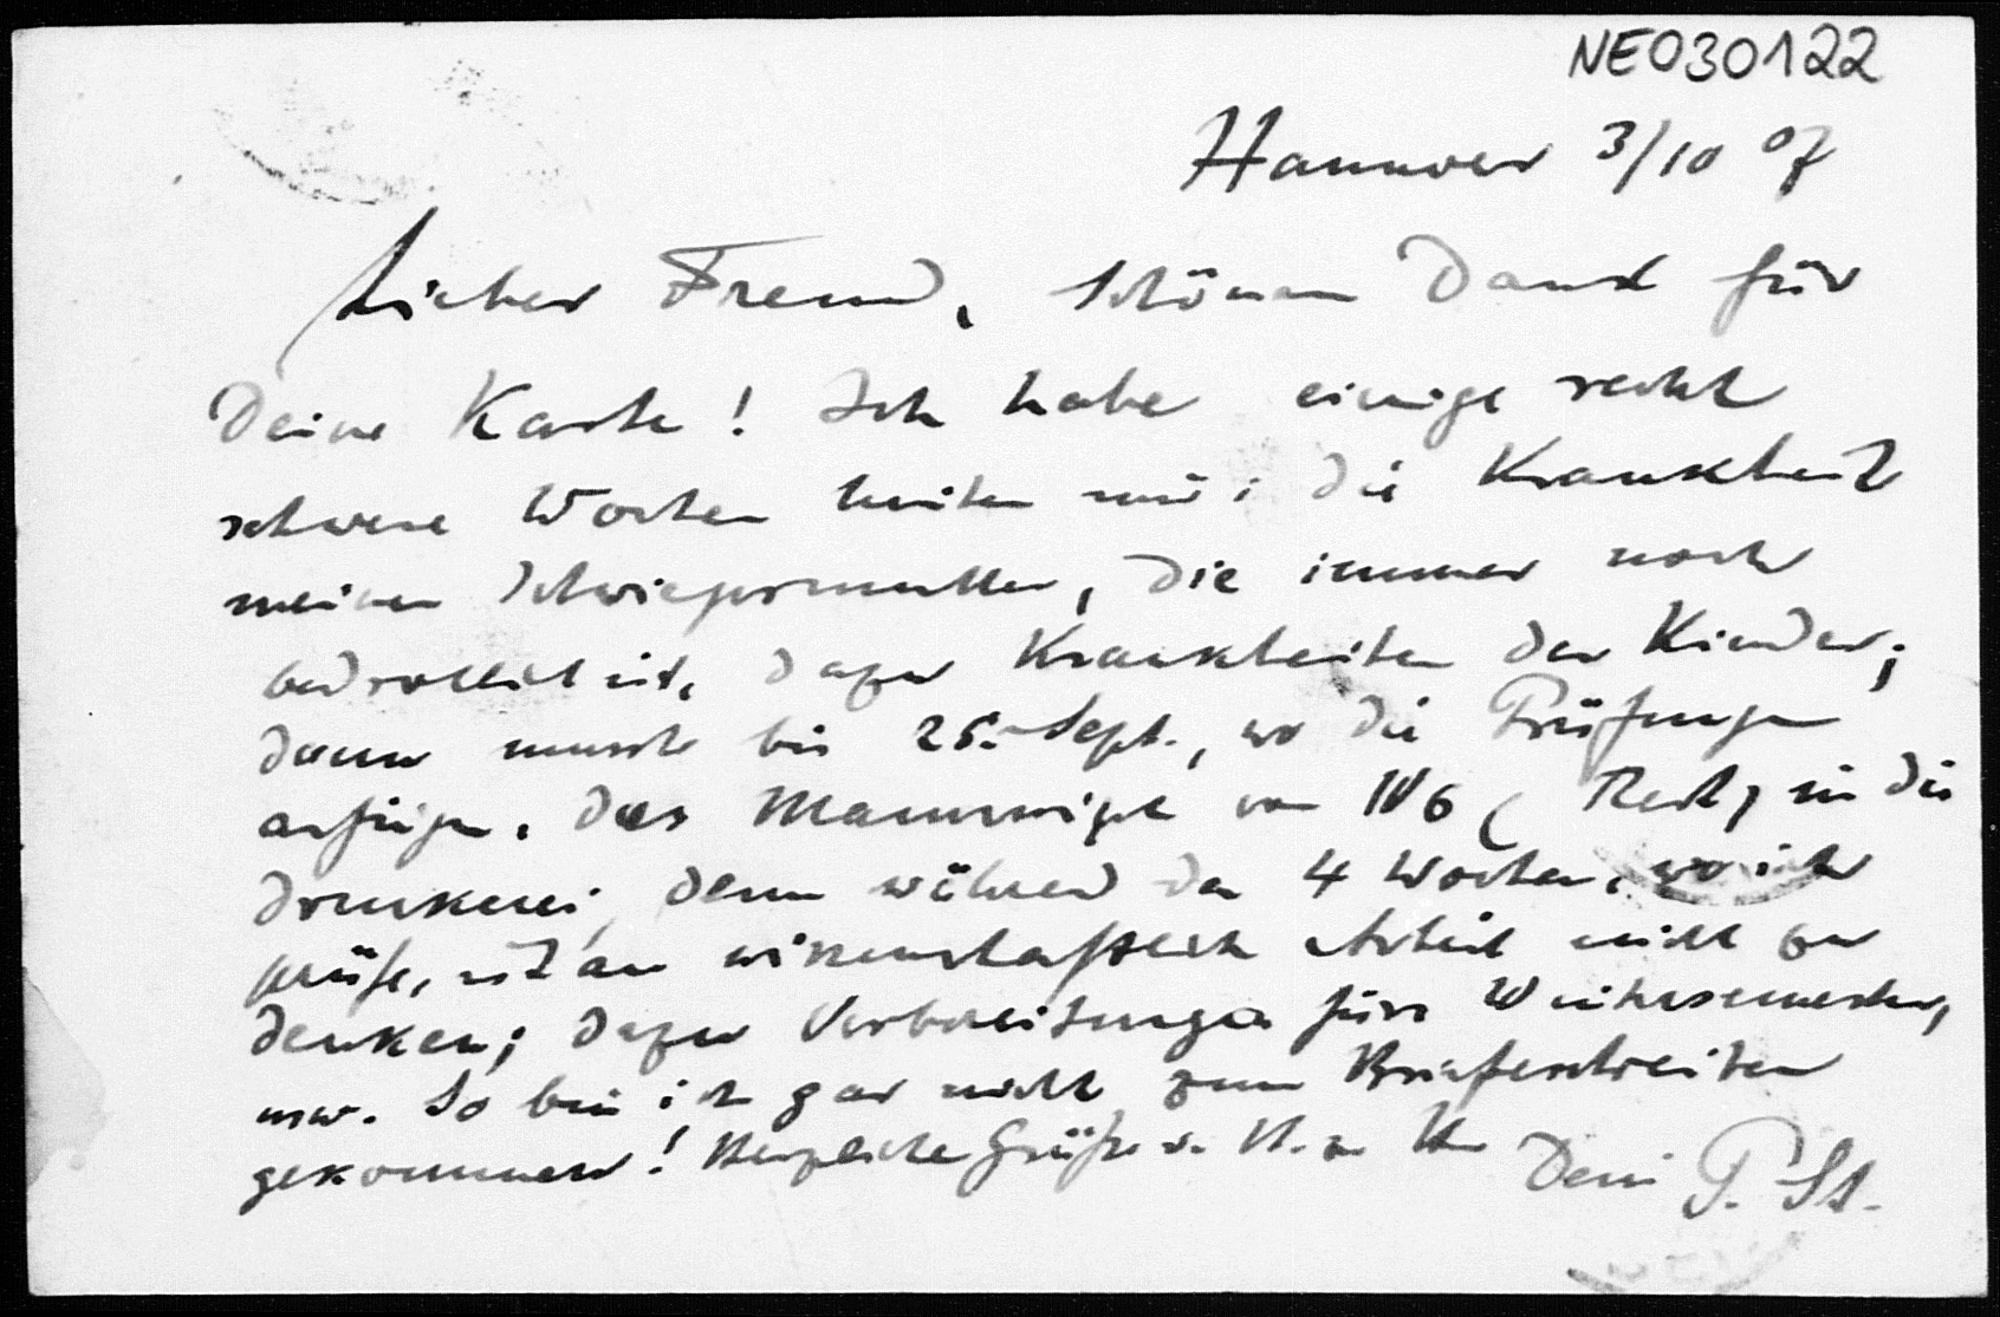 NE030122
Hannover 3/10 07
Lieber Freund, schönen Dank für
Deine Karte! Ich habe einige recht
schwere Wochen hinter mir; die Krankheit
meiner Schwiegermutter, die immer noch
bedrohlich ist, dazu Krankheiten der Kinder;
dann musste bis 25. Sept., wo die Prüfungen
anfingen, das Manuskript von IV6 (Rest) in die
Druckerei, denn während der 4 Wochen, wo ich
prüfe, ist an wissenschaftlich Arbeit nicht zu
denken; dazu Vorbereitungen fürs Wintersemester,
usw. So bin ich gar nicht zum Briefeschreiben
gekommen! Herzliche Grüße v. H. z. H. Dein P. St.